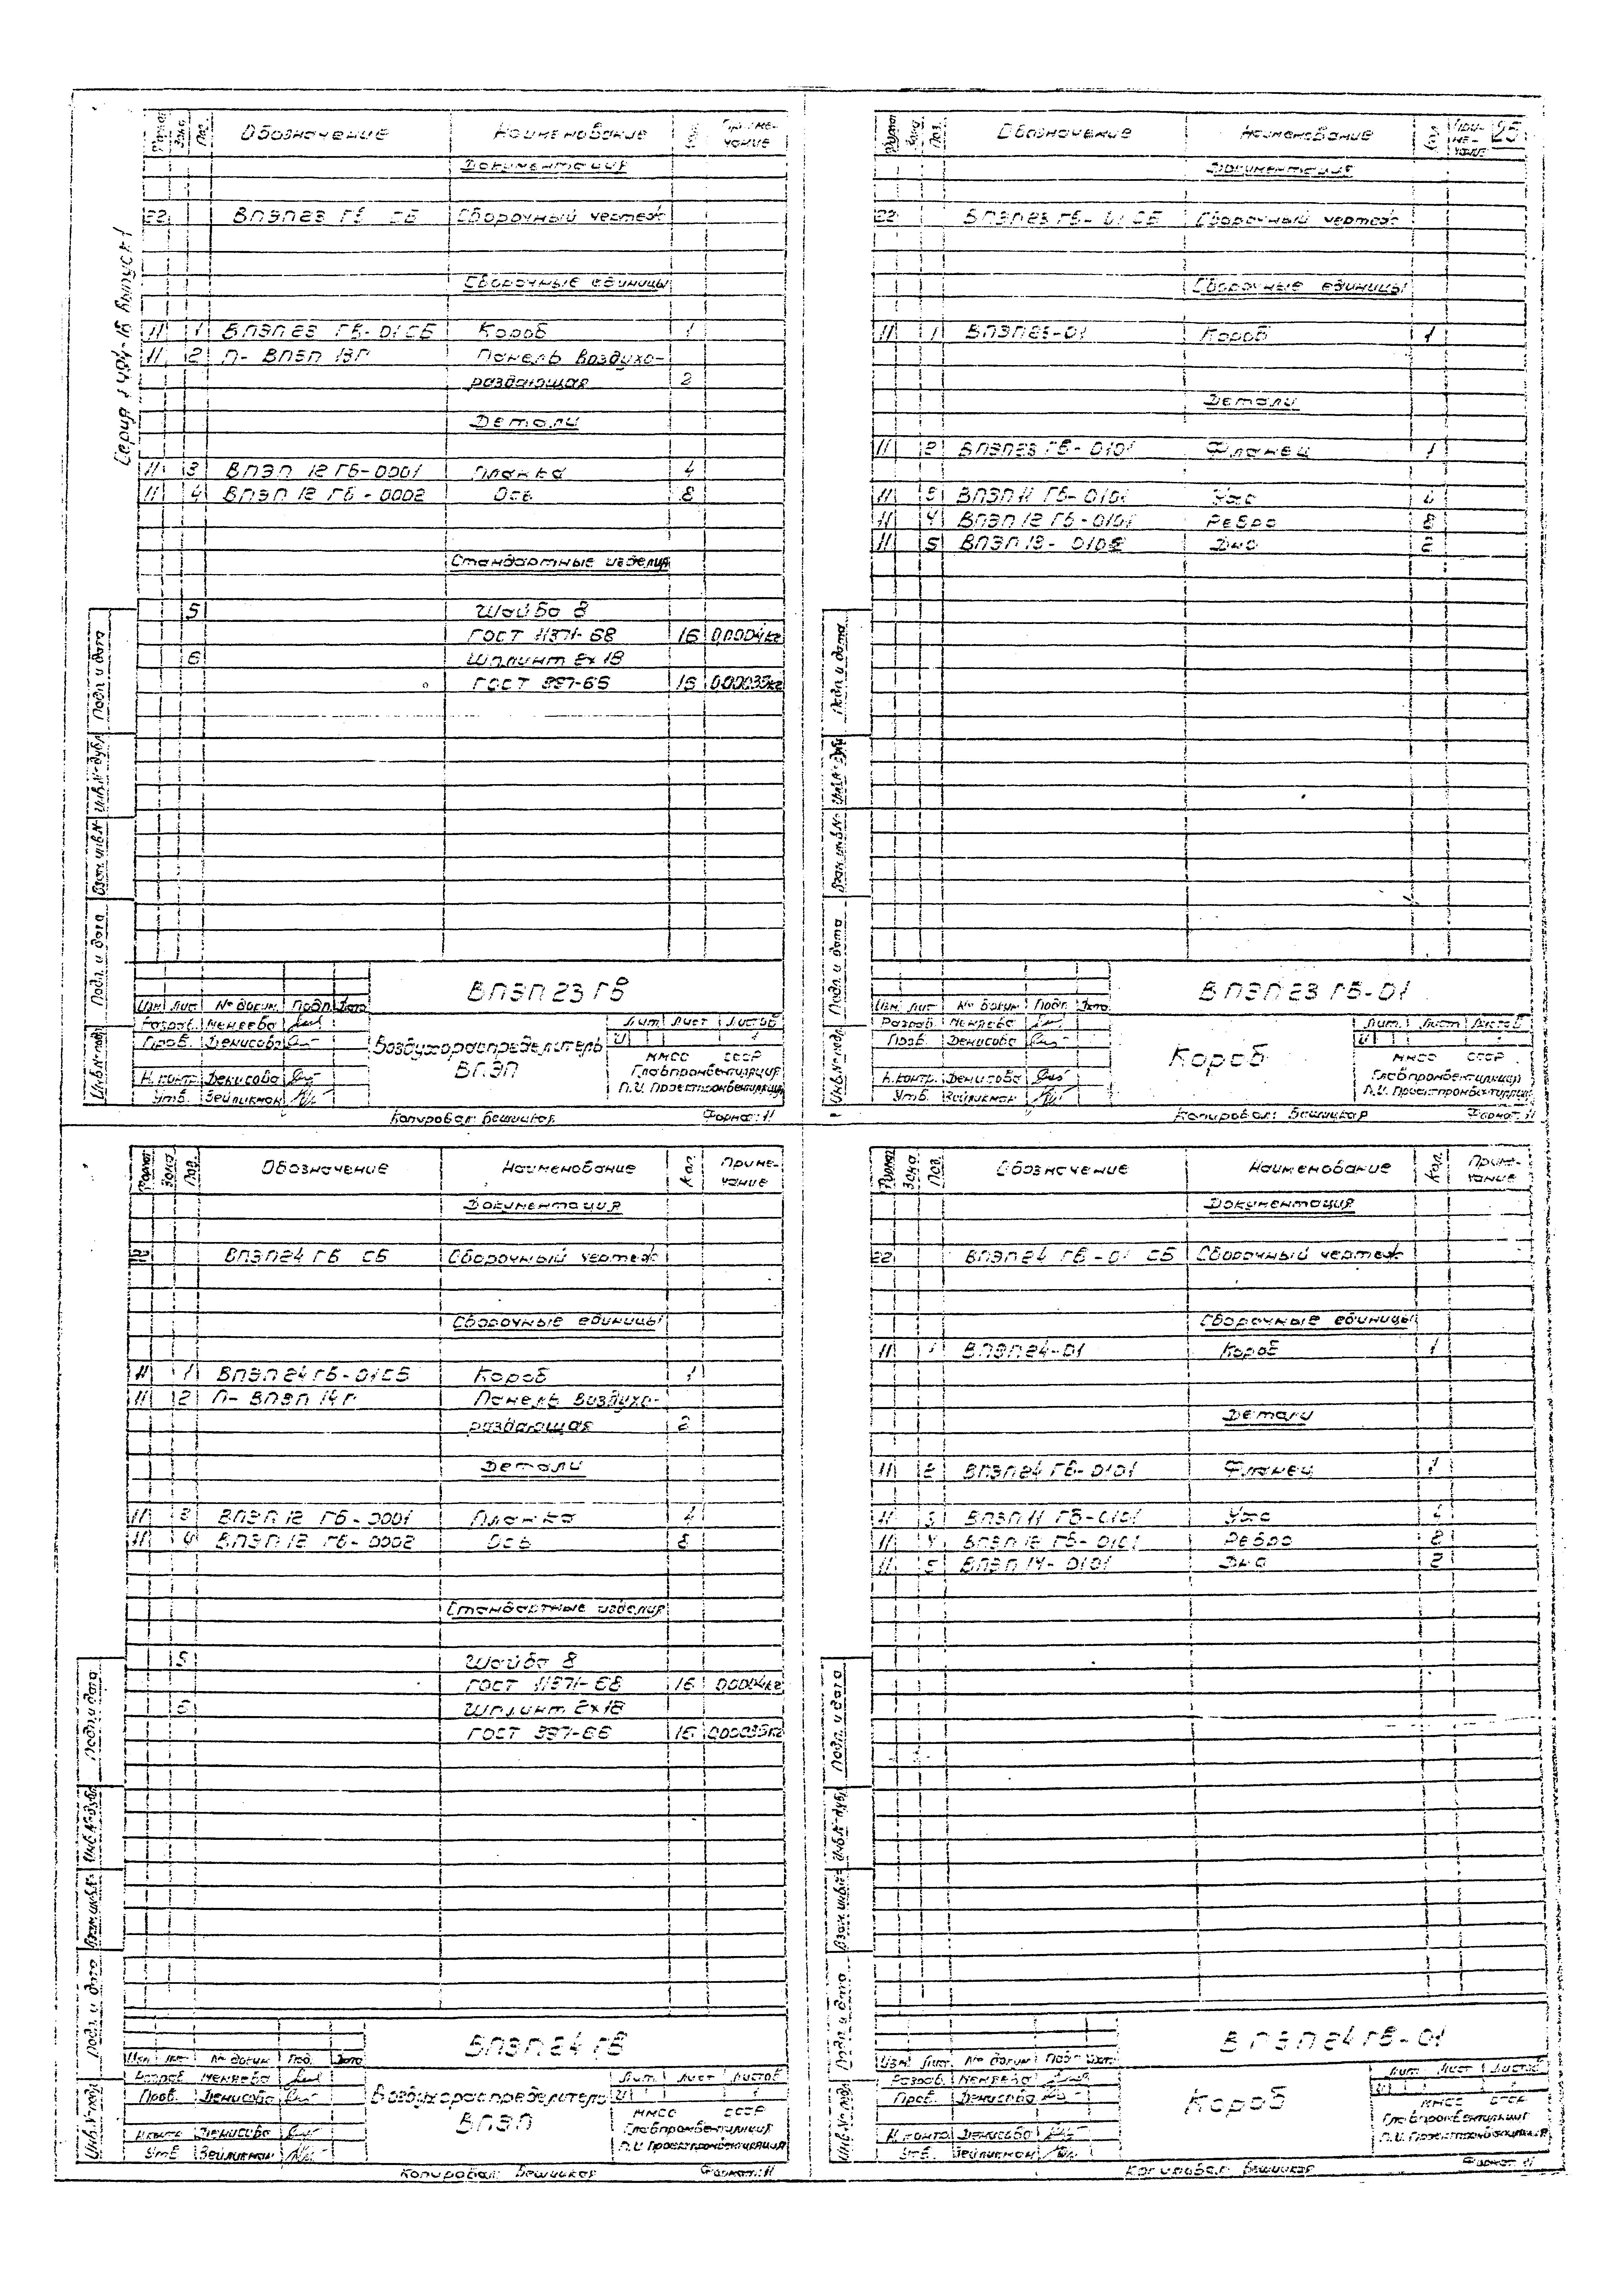 Серия 1.494-18 Выпуск 1
Формат Зона Поз. Обозначение Наименование Приме-
чание
Документация
22 ВПЭП23 ГВ СБ Сборочный чертеж
Сборочные единицы
11 1 ВПЭП23 ГВ-01СБ Короб 1
11 2 П-ВПЭП 13Г Панель воздухо-
раздающая 2
Детали
11 3 ВПЭП 12 ГБ-0001 Планка 4
11 4 ВПЭП 12 ГБ-0002 Ось 8
Стандартные изделия
5 Шайба 8
ГОСТ 11371-68 16 0,0004кг
6 Шплинт 2х18
ГОСТ 397-66 16 0,00035кг
Подп. и дата
Инв.№ дубл.
Взам. инв.№
Подп. и дата
Инв.№ подл.
ВПЭП23 ГВ
Изм Лист № докум. Подп. Дата
Разраб. Меняева
Пров. Денисова
Н.контр. Денисова
Утв. Зейликман
Воздухораспределитель
ВПЭП
Лит Лист Листов
И 1
ММСС СССР
Главпромвентиляция
П.И. Проектпромвентиляция
Копировал: Бешицкая Формат: 11
Формат Зона Поз. Обозначение Наименование Кол При-
ме-
чание 25
Документация
22 ВПЭП23 ГВ-01 СБ Сборочный чертеж
Сборочные единицы
11 1 ВПЭП23-01 Короб 1
Детали
11 2 ВПЭП23 ГВ-0101 Фланец 1
11 3 ВПЭП 11 ГБ-0101 Ухо 4
11 4 ВПЭП 12 ГБ-0101 Ребро 8
11 5 ВПЭП 13- Дно 2
Подп. и дата
Инв.№ дубл.
Взам. инв.№
Подп. и дата
Инв.№ подл.
ВПЭП23 ГВ-01
Изм Лист № докум Подп. Дата
Разраб. Меняева
Пров. Денисова
Н.контр. Денисова
Утв. Зейликман
Короб
Лит. Лист Листов
И 1
ММСС СССР
Главпромвентиляция
П.И. Проектпромвентиляция
Копировал: Бешицкая Формат: 11
Формат Зона Поз. Обозначение Наименование Кол. Приме-
чание
Документация
22 ВПЭП24 ГВ СБ Сборочный чертеж
Сборочные единицы
11 1 ВПЭП24ГВ-01СБ Короб 1
11 2 П-ВПЭП 14Г Панель воздухо-
раздающая 2
Детали
11 3 ВПЭП 12 ГБ-0001 Планка 4
11 4 ВПЭП 12 ГБ-0002 Ось 8
Стандартные изделия
5 Шайба 8
ГОСТ 11371-68 16 0,0004кг
6 Шплинт 2х18
ГОСТ 397-66 16 0,00035кг
Подп. и дата
Инв.№ дубл.
Взам. инв.№
Подп. и дата
Инв.№ подл.
ВПЭП24 ГВ
Изм Лист № докум Под. Дата
Разраб Меняева
Пров. Денисова
Н.контр Денисова
Утв. Зейликман
Воздухораспределитель
ВПЭП
Лит. Лист Листов
И 1
ММСС СССР
Главпромвентиляция
П.И. Проектпромвентиляция
Копировал: Бешицкая Формат: 11
Формат Зона Поз. Обозначение Наименование Кол. Приме-
чание
Документация
22 ВПЭП24 ГВ-01 СБ Сборочный чертеж
Сборочные единицы
11 1 ВПЭП24-01 Короб 1
Детали
11 2 ВПЭП24 ГВ-0101 Фланец 1
11 3 ВПЭП 11 ГБ-0101 Ухо 4
11 4 ВПЭП 12 ГБ-0101 Ребро 8
11 5 ВПЭП 14-0101 Дно 2
Подп. и дата
Инв.№ дубл.
Взам. инв.№
Подп. и дата
Инв.№ подл.
ВПЭП24ГВ-01
Изм Лист. № докум Подп Дата
Разраб. Меняева
Пров. Денисова
Н.контр Денисова
Утв. Зейликман
Короб
Лит Лист Листов
И 1
ММСС СССР
Главпромвентиляция
П.И. Проектпромвентиляция
Копировал: Бешицкая Формат: 11